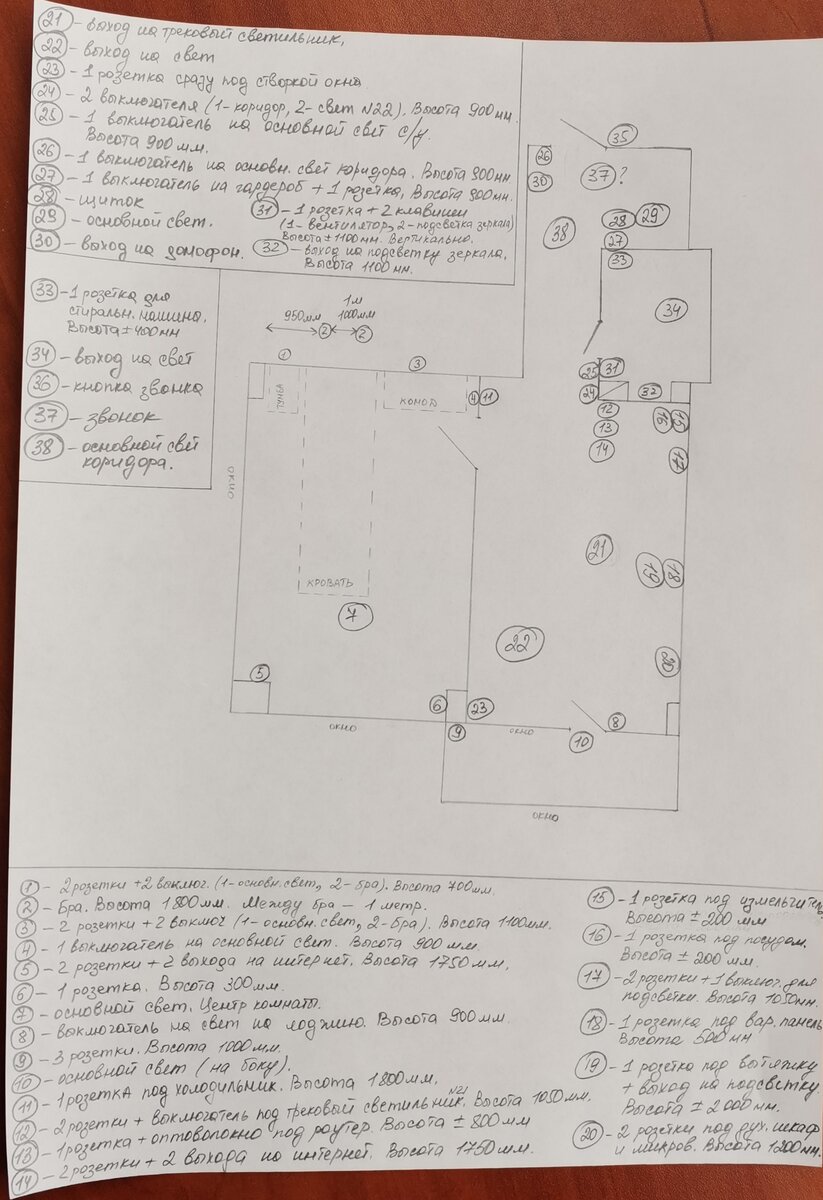 21 - выход на трековый светильник,
22 - выход на свет
23 - 1 розетка сразу под створкой окна
24 - 2 выключателя (1-коридор, 2-свет N22). Высота 900мм.
25 - 1 выключатель на основной свет с/у.
Высота 900 мм.
26 - 1 выключатель на основн. свет коридора. Высота 900мм
27 - 1 выключатель на гардероб + 1 розетка, Высота 900мм.
28 - щиток
29 - основной свет.
30 - выход на домофон.
31 - 1 розетка + 2 клавиши
(1-вентилятор, 2-подсветка зеркала)
Высота ± 1100мм. Вертикально.
32 - выход на подсветку зеркала,
Высота 1100 мм.
33 - 1 розетка для
стиральн. машина.
Высота ± 400мм
34 - выход на свет
36 - кнопка звонка
37 - звонок
38 - основной свет
коридора.
35
26
30
37?
38
28 29
27
33
34
25 31
24
32
12
13
14
16 15
17
950мм
2
1м
1000мм
2
1
3
ТУМБА
КОМОД
4 11
ОКНО
КРОВАТЬ
7
21
19 18
22
20
5
6
23
9
ОКНО
ОКНО
10
8
ОКНО
1 - 2 розетки + 2 выключ. (1-основн. свет, 2-бра). Высота 700мм.
2 - Бра. Высота 1800мм. Между бра - 1 метр.
3 - 2 розетки + 2 выключ (1-основн. свет, 2-бра). Высота 1100мм.
4 - 1 выключатель на основной свет. Высота 900 мм.
5 - 2 розетки + 2 выхода на интернет. Высота 1750мм,
6 - 1 розетка. Высота 300мм.
7 - основной свет. Центр комнаты.
8 - выключатель на свет на лоджию. Высота 900мм.
9 - 3 розетки. Высота 1000мм.
10 - основной свет (на боку).
11 - 1 розеткА под холодильник. Высота 1800мм,
12 - 2 розетки + выключатель под трековый светильник. N21 Высота 1050мм.
13 - 1 розетка + оптоволокно под роутер. Высота ± 800мм
14 - 2 розетки + 2 выхода на интернет. Высота 1750мм.
15 - 1 розетка под измельчитель
Высота ± 200 мм
16 - 1 розетка под посудом.
Высота ± 200мм.
17 - 2 розетки + 1 выключ. для
подсветки. Высота 1050мм.
18 - 1 розетка под вар. панель
Высота 500мм
19 - 1 розетка под вытяжку
+ выход на подсветку.
Высота ± 2000мм.
20 - 2 розетки под дух. шкаф
и микров. Высота 1200мм.